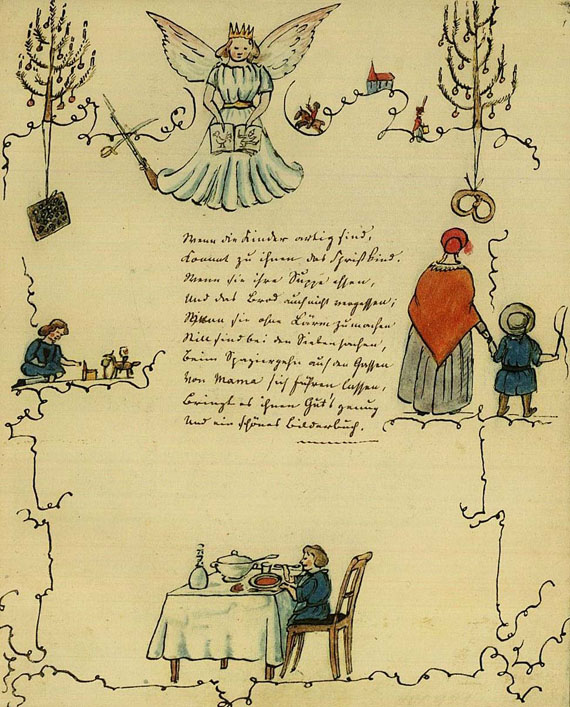 Wenn die Kinder artig sind,
Kommt zu ihnen das Christkind.
Wenn sie ihre Suppe essen,
Und das Brod auch nicht vergessen;
Wenn sie ohne Lärm zu machen
Still sind bei den Siebensachen,
Beim Spaziergehn auf den Gassen
Von Mama sich führen lassen,
Bringt es ihnen Gut's genug
Und ein schönes Bilderbuch.